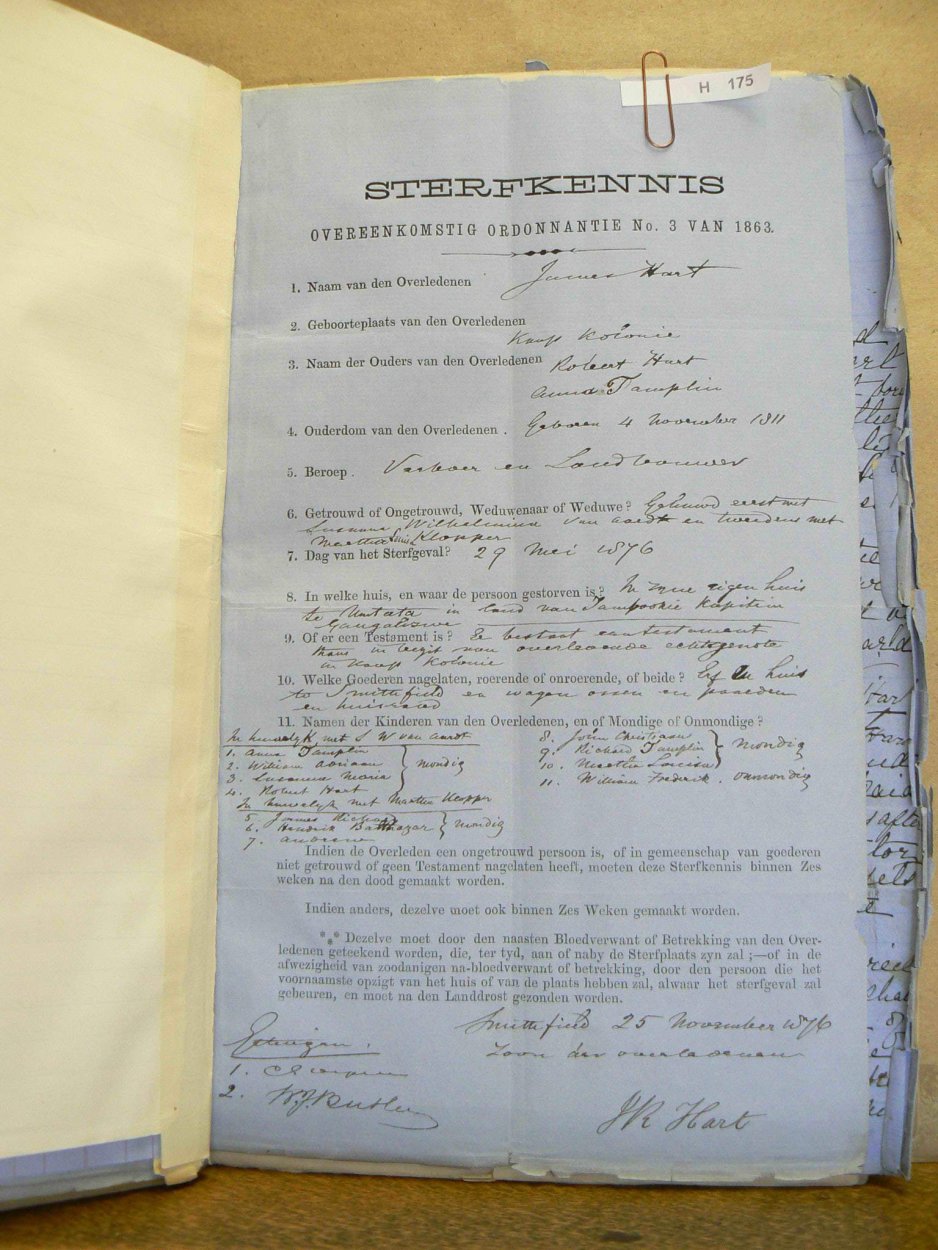 H 175
STERFKENNIS
OVEREENKOMSTIG ORDONNANTIE No. 3 VAN 1863.
1. Naam van den Overledenen James Hart
2. Geboorteplaats van den Overledenen Kaap Kolonie
3. Naam der Ouders van den Overledenen Robert Hart
Anna Tamplin
4. Ouderdom van den Overledenen . Geboren 4 November 1811
5. Beroep . Veeboer en Landbouwer
6. Getrouwd of Ongetrouwd, Weduwenaar of Weduwe? Gehuwd eerst met
Susanna Wilhelmina van aardt en tweedens met
Martha Louisa Klopper
7. Dag van het Sterfgeval? 29 Mei 1876
8. In welke huis, en waar de persoon gestorven is? In zyne eigen huis
te Umtata in land van Tambookie Kapitein
Gangelizwe
9. Of er een Testament is? Er bestaat een testament
thans in bezit van overleedende echtgenote
in Kaap Kolonie
10. Welke Goederen nagelaten, roerende of onroerende, of beide? Erf en huis
to Smithfield en wagen ossen en paarden
en huisraad
11. Namen der Kinderen van den Overledenen, en of Mondige of Onmondige?
In huwelyk met S W van aardt
1. Anna Tamplin
2. William Adriaan
3. Susanna Maria
mondig
4. Robert Hart
In huwelyk met Martha Klopper
5. James Richard
6. Hendrik Balthazar
mondig
7. Andrew
8. John Christiaan
9. Richard Tamplin
mondig
10. Martha Louisa
11. William Frederik . onmondig
Indien de Overleden een ongetrouwd persoon is, of in gemeenschap van goederen
niet getrouwd of geen Testament nagelaten heeft, moeten deze Sterfkennis binnen Zes
weken na den dood gemaakt worden.
Indien anders, dezelve moet ook binnen Zes Weken gemaakt worden.
*** Dezelve moet door den naasten Bloedverwant of Betrekking van den Over-
ledenen geteekend worden, die, ter tyd, aan of naby de Sterfplaats zyn zal ;—of in de
afwezigheid van zoodanigen na-bloedverwant of betrekking, door den persoon die het
voornaamste opzigt van het huis of van de plaats hebben zal, alwaar het sterfgeval zal
gebeuren, en moet na den Landdrost gezonden worden.
Smithfield 25 November 1876
Zoon der overledenen
Getuigen.
1.
2. W.J. Butler
JR Hart